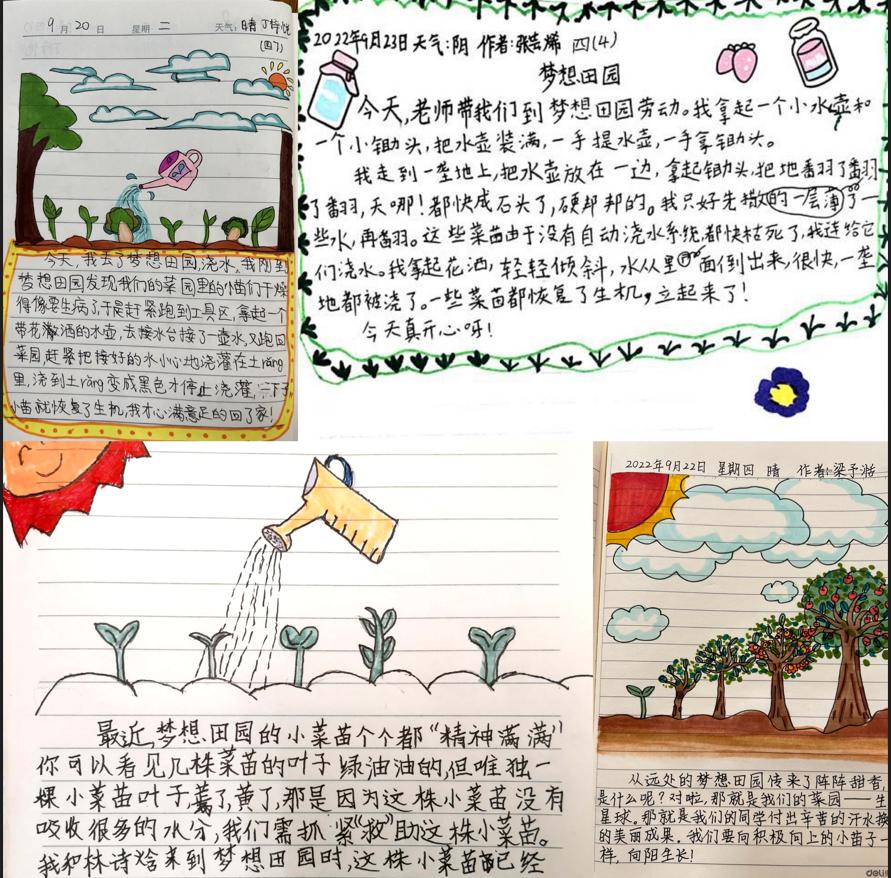 9月20日 星期二 天气:晴
(四7)
今天,我去了梦想田园,浇水。我刚到
梦想田园发现我们的菜园里的小苗们干燥
得像要生病了于是赶紧跑到工具区,拿起一个
带花洒的水壶,去接水台接了一壶水,又跑回
菜园赶紧把接好的水小心地浇灌在土rǎng
里,浇到土rǎng变成黑色才停止浇灌,一下子
小苗就恢复了生机,我才心满意足的回了家!
2022年9月23日 天气:阴 作者:张 烯 四(4)
梦想田园
今天,老师带我们到梦想田园劳动。我拿起一个小水壶和
一个小锄头,把水壶装满,一手提水壶,一手拿锄头。
我走到一垄地上,把水壶放在一边,拿起锄头,把地翻了翻
了翻,天哪!都快成石头了,硬邦邦的。我只好先撒的一层薄了一
些水,再翻。这些菜苗由于没有自动浇水系统,都快枯死了,我连给它
们浇水。我拿起花洒,轻轻倾斜,水从里面倒出来,很快,一垄
地都被浇了。一些菜苗都恢复了生机,立起来了!
今天真开心呀!
最近,梦想田园的小菜苗个个都“精神满满”
你可以看见几株菜苗的叶子绿油油的,但唯独一
棵小菜苗叶子黄了,黄了,那是因为这株小菜苗没有
吸收很多的水分,我们需抓紧“救”助这株小菜苗。
我和林诗 来到梦想田园时,这株小菜苗已经
2022年9月22日 星期四 晴 作者:梁予湉
从远处的梦想田园传来了阵阵甜香,
是什么呢?对啦,那就是我们的菜园——生
星球。那就是我们的同学付出辛苦的汗水换
的美丽成果。我们要向积极向上的小苗子一
样,向阳生长!